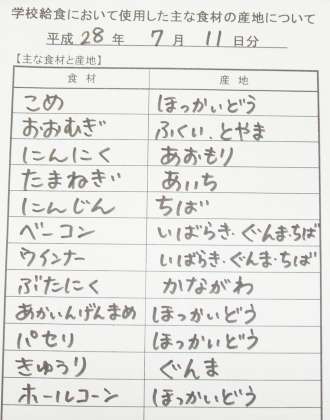 学校給食において使用した主な食材の産地について
平成 28 年 7 月 11 日分
【主な食材と産地】
食材 産地
こめ ほっかいどう
おおむぎ ふくい、とやま
にんにく あおもり
たまねぎ あいち
にんじん ちば
ベーコン いばらき・ぐんま・ちば
ウインナー いばらき・ぐんま・ちば
ぶたにく かながわ
あかいんげんまめ ほっかいどう
パセリ ほっかいどう
きゅうり ぐんま
ホールコーン ほっかいどう